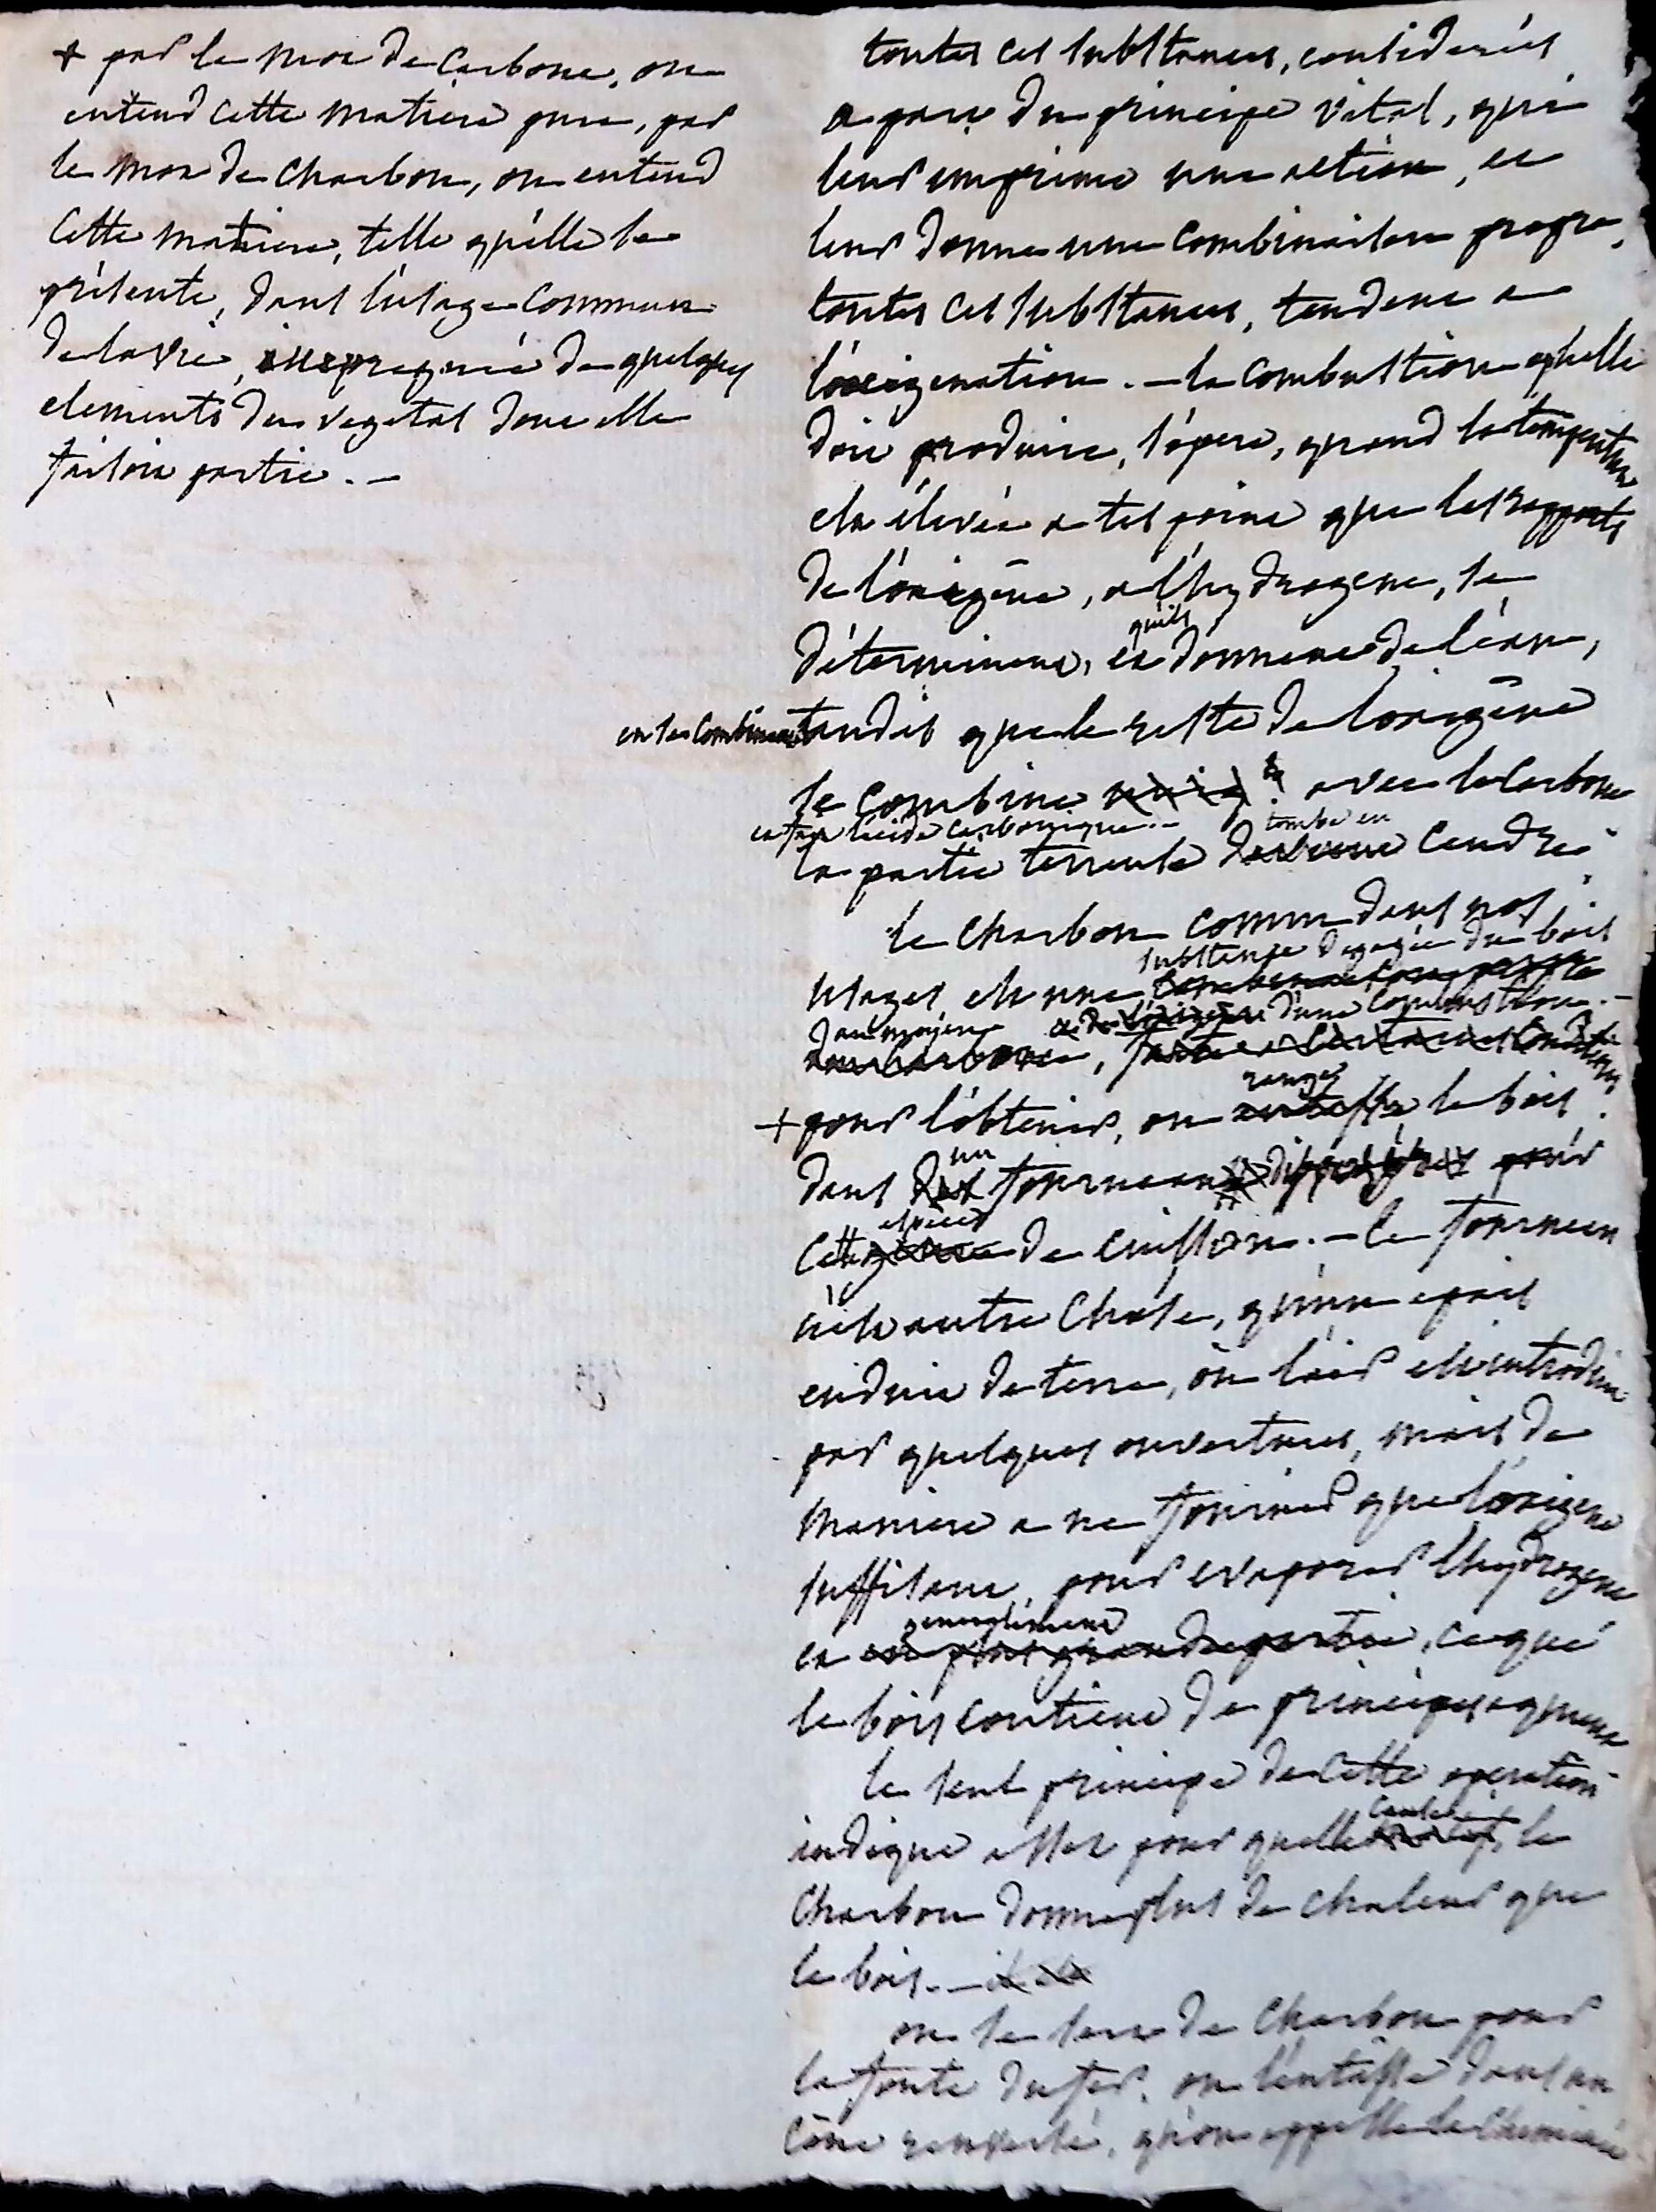 + par le mot de Carbone, on
entend cette matiere pure, par
le mot de charbon, on entend
cette matiere, telle qu'elle se
présente, dans l'usage commun
de la vie, impregnée de quelques
elements du vegetal dont elle
faisoit partie. –
toutes ces substances, considerées
a part du principe vital, qui
leur imprime une action, et
leur donne une combinaison propre,
toutes ces substances, tendent a
l'oxigenation. – la combustion qu'elle
doit produire, s'opere, quand la temperature
est élevée a tel point que les rapports
de l'oxigène, a l'hydrogene, se
déterminent, qu'ils donnent de l'eau,
en se combinant
tandis que le reste de l'oxigène
se combine avec le carbone
et fait l'acide carbonique. –
tombe en
la partie terreuse devient cendre
le charbon comm dans nos
substance degagée du bois
usages est une
au moyen d'une combustion. –
ranges
+ pour l'obtenir, on entasse le bois
un
dans des fourneaux disposés pour
espece
cette genre de cuisson. – le fourneau
n'est autre chose, qu'un epais
enduit de terre, où l'air est introduit
par quelques ouvertures, mais de
maniere a ne fournir que l'oxigene
suffisant, pour evaporer l'hydrogene
generalement
et en plus grande partie, ce que
le bois contient de principes aqueux
le seul principe de cette operation
indique assez pour quelle cause le
charbon donne plus de chaleur que
le bois. –
on se sert de charbon pour
la fonte du fer. on l'entasse dans un
cône renversé, qu'on appelle la cheminée